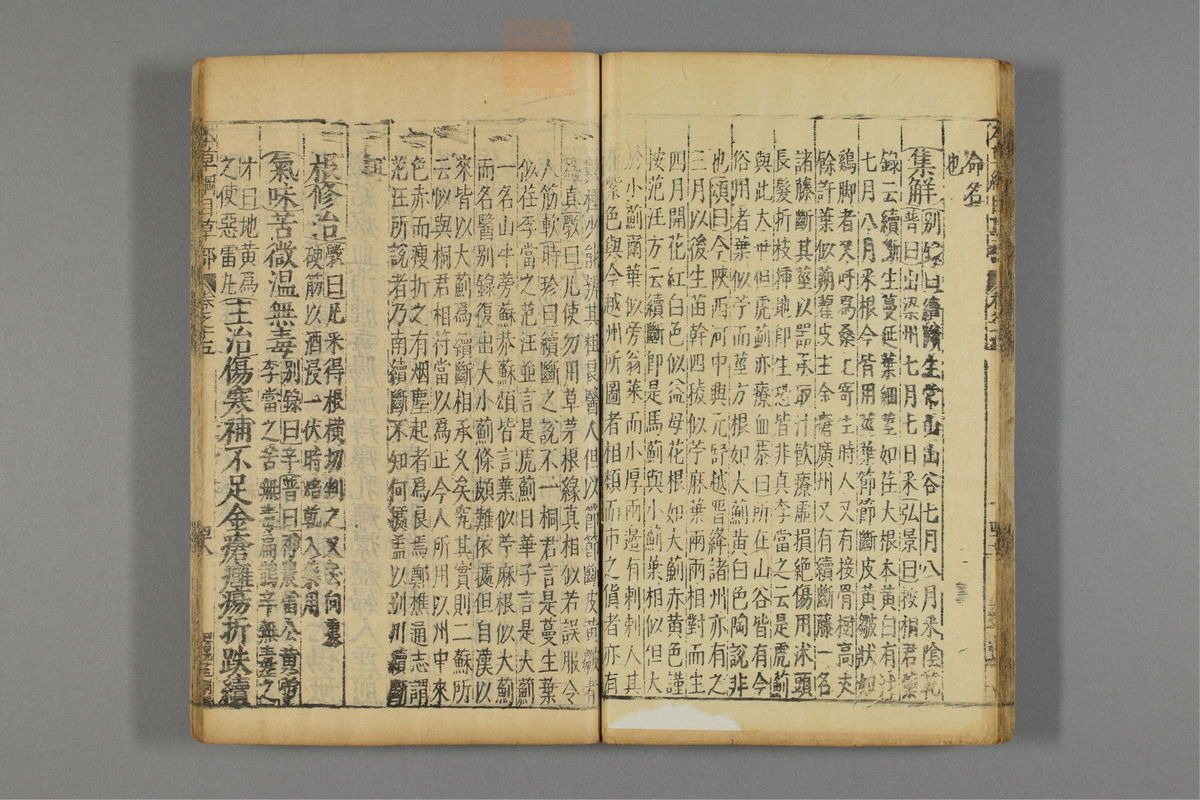 命名
也
集解別錄曰續斷生常山山谷七月八月采陰乾
普曰出梁州七月七日采弘景曰按桐君藥
錄云續斷生蔓延葉細莖如荏大根本黃白有汁
七月八月采根今皆用莖葉節節斷皮黃皺狀如
雞脚者又呼爲桑上寄生時人又有接骨樹高丈
餘許葉似蒴藋皮主金瘡廣州又有續斷藤一名
諾藤斷其莖以器承取汁飲療虛損絕傷用沐頭
長髮折枝插地卽生恐皆非真李當之云是虎薊
與此大世但虎薊亦療血恭曰所在山谷皆有今
俗用者葉似苧而莖方根如大薊黃白色陶說非
也頌曰今陝西河中興元舒越晉絳諸州亦有之
三月以後生苗幹四稜似苧麻葉兩兩相對而生
四月開花紅白色似益母花根如大薊赤黃色謹
按范汪方云續斷卽是馬薊與小薊葉相似但大
於小薊爾葉似旁翁菜而小厚兩邊有刺刺人其
花紫色與今越州所圖者相類而市之貨者亦有
數種少能辨其粗良醫人但以節節斷皮黃皺者
爲真斅曰凡使勿用草茅根緣真相似若誤服令
人筋軟時珍曰續斷之說不一桐君言是蔓生葉
似荏李當之范汪並言是虎薊日華子言是大薊
一名山牛蒡蘇恭蘇頌皆言葉似苧麻根似大薊
而名醫別錄復出大小薊條頗難依據但自漢以
來皆以大薊爲續斷相承久矣究其實則二蘇所
云似與桐君相符當以爲正今人所用以川中來
色赤而瘦折之有烟塵起者爲良焉鄭樵通志謂
范汪所說者乃南續斷不知何據蓋以別川續斷
耳
根修治斅曰凡采得根橫切剉之又去向裏
硬筋以酒浸一伏時焙乾入藥用
氣味苦微温無毒別錄曰辛普曰神農雷公黃帝
李當之苦無毒扁鵲辛無毒之
才曰地黃爲
之使惡雷丸主治傷寒補不足金瘡癰瘍折跌續
本草綱目草部 卷之十五